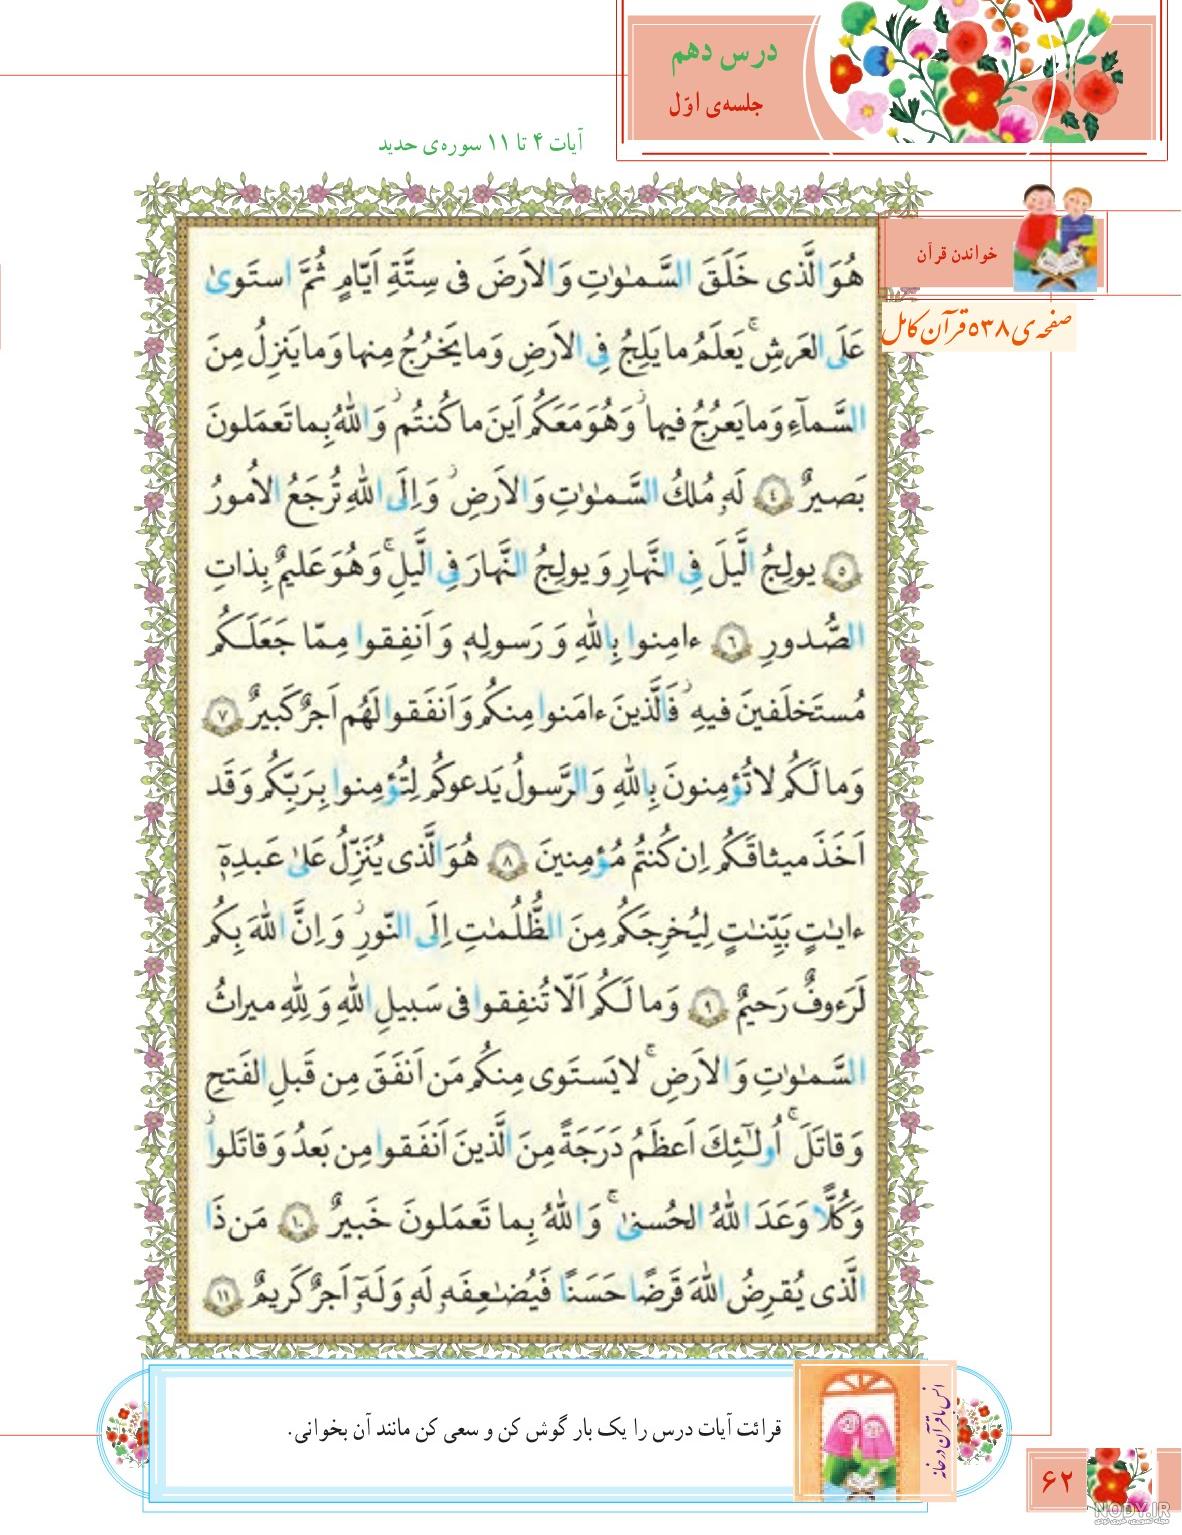 درس دهم
جلسه‌ی اوّل
آیات ۴ تا ۱۱ سوره‌ی حدید
خواندن قرآن
صفحه‌ی ۵۳۸ قرآن کامل
هُوَ الَّذی خَلَقَ السَّمٰوٰتِ وَ الاَرضَ فی سِتَّةِ اَیّامٍ ثُمَّ استَویٰ
عَلَی العَرشِ ۚ یَعلَمُ ما یَلِجُ فِی الاَرضِ وَ ما یَخرُجُ مِنها وَ ما یَنزِلُ مِنَ
السَّمآءِ وَ ما یَعرُجُ فیها ۖ وَ هُوَ مَعَکُم اَینَ ما کُنتُم ۚ وَ اللّٰهُ بِما تَعمَلونَ
بَصیرٌ ﴿۴﴾ لَهٗ مُلکُ السَّمٰوٰتِ وَ الاَرضِ ۚ وَ اِلَی اللّٰهِ تُرجَعُ الاُمورُ
﴿۵﴾ یولِجُ الَّیلَ فِی النَّهارِ وَ یولِجُ النَّهارَ فِی الَّیلِ ۚ وَ هُوَ عَلیمٌ بِذاتِ
الصُّدورِ ﴿۶﴾ ءامِنوا بِاللّٰهِ وَ رَسولِهٖ وَ اَنفِقوا مِمّا جَعَلَکُم
مُستَخلَفینَ فیهِ ۖ فَالَّذینَ ءامَنوا مِنکُم وَ اَنفَقوا لَهُم اَجرٌ کَبیرٌ ﴿۷﴾
وَ ما لَکُم لا تُؤمِنونَ بِاللّٰهِ وَ الرَّسولُ یَدعوکُم لِتُؤمِنوا بِرَبِّکُم وَ قَد
اَخَذَ میثاقَکُم اِن کُنتُم مُؤمِنینَ ﴿۸﴾ هُوَ الَّذی یُنَزِّلُ عَلیٰ عَبدِهٖٓ
ءایٰتٍ بَیِّنٰتٍ لِیُخرِجَکُم مِنَ الظُّلُمٰتِ اِلَی النّورِ ۚ وَ اِنَّ اللّٰهَ بِکُم
لَرَءوفٌ رَحیمٌ ﴿۹﴾ وَ ما لَکُم اَلّا تُنفِقوا فی سَبیلِ اللّٰهِ وَ لِلّٰهِ میراثُ
السَّمٰوٰتِ وَ الاَرضِ ۚ لا یَستَوی مِنکُم مَن اَنفَقَ مِن قَبلِ الفَتحِ
وَ قاتَلَ ۚ اُولٰٓئِکَ اَعظَمُ دَرَجَةً مِنَ الَّذینَ اَنفَقوا مِن بَعدُ وَ قاتَلوا ۚ
وَ کُلًّا وَعَدَ اللّٰهُ الحُسنیٰ ۚ وَ اللّٰهُ بِما تَعمَلونَ خَبیرٌ ﴿۱۰﴾ مَن ذَا
الَّذی یُقرِضُ اللّٰهَ قَرضًا حَسَنًا فَیُضٰعِفَهٗ لَهٗ وَ لَهٗٓ اَجرٌ کَریمٌ ﴿۱۱﴾
انس با قرآن در خانه
قرائت آیات درس را یک بار گوش کن و سعی کن مانند آن بخوانی.
۶۲
NODY.IR